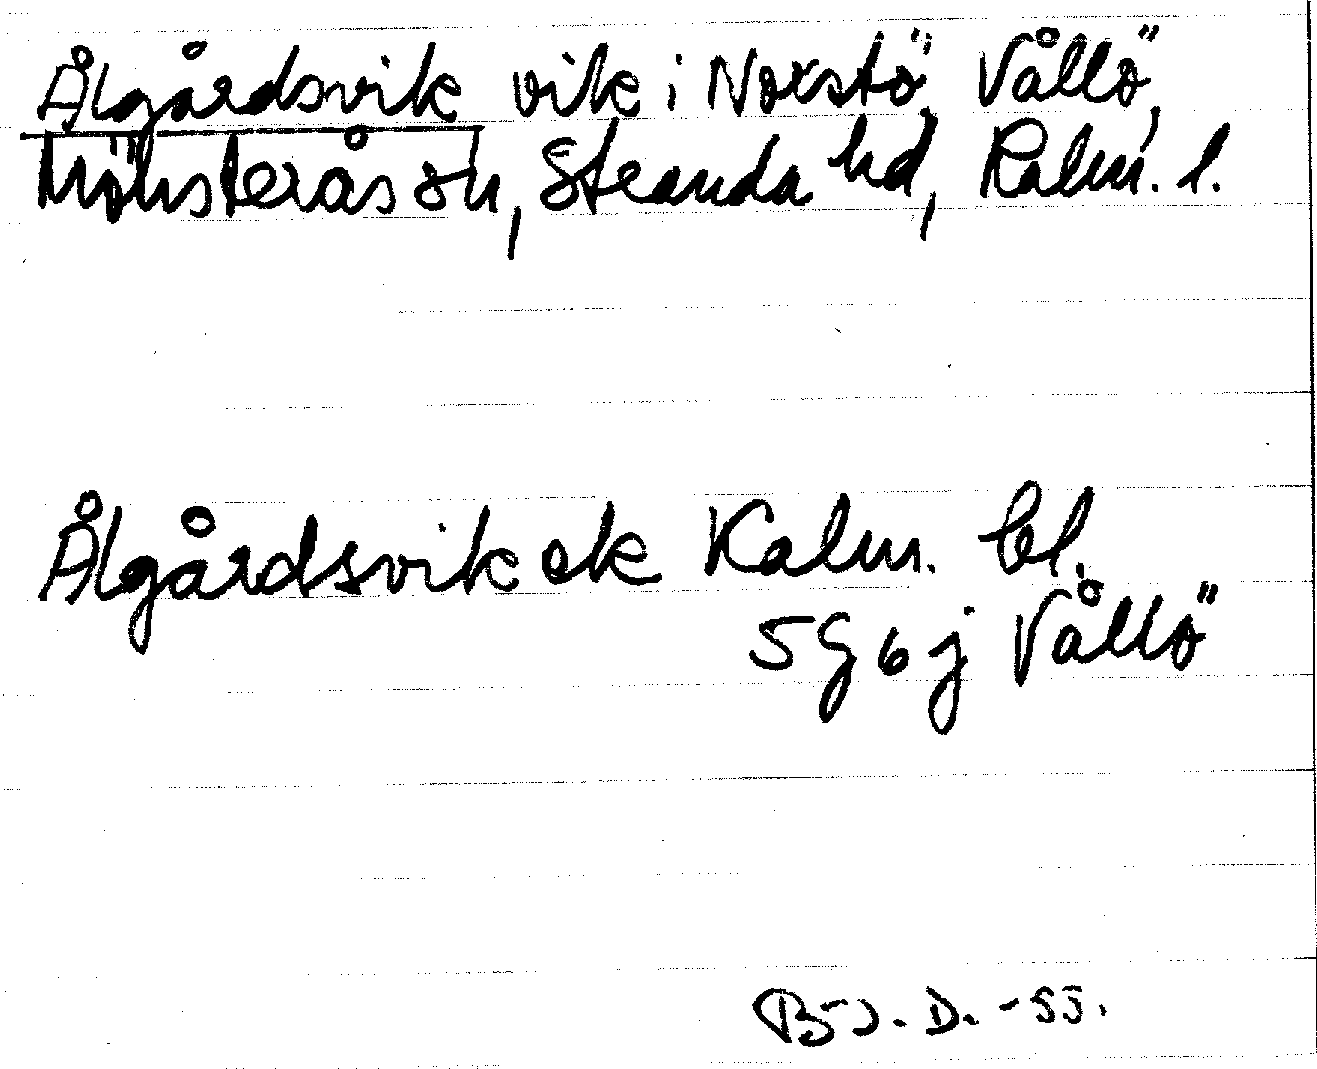 Ålgårdsvik vik i Norstö, Vållö,
Mönsterås sn, Stranda hd, Kalm. l.
Ålgårdsvik ek Kalm. bl.
5G6j Vållö